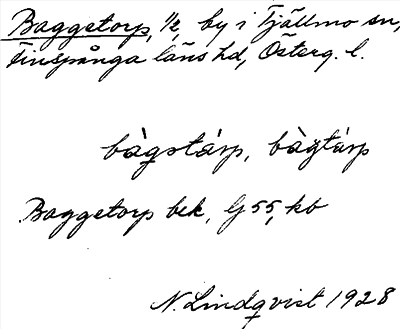 Baggetorp, 1/2, by i Tjällmo sn,
Finspånga läns hd, Österg. l.
bàgstárp, bàgtárp
Baggetorp bek, G 55, kb
N. Lindqvist 1928